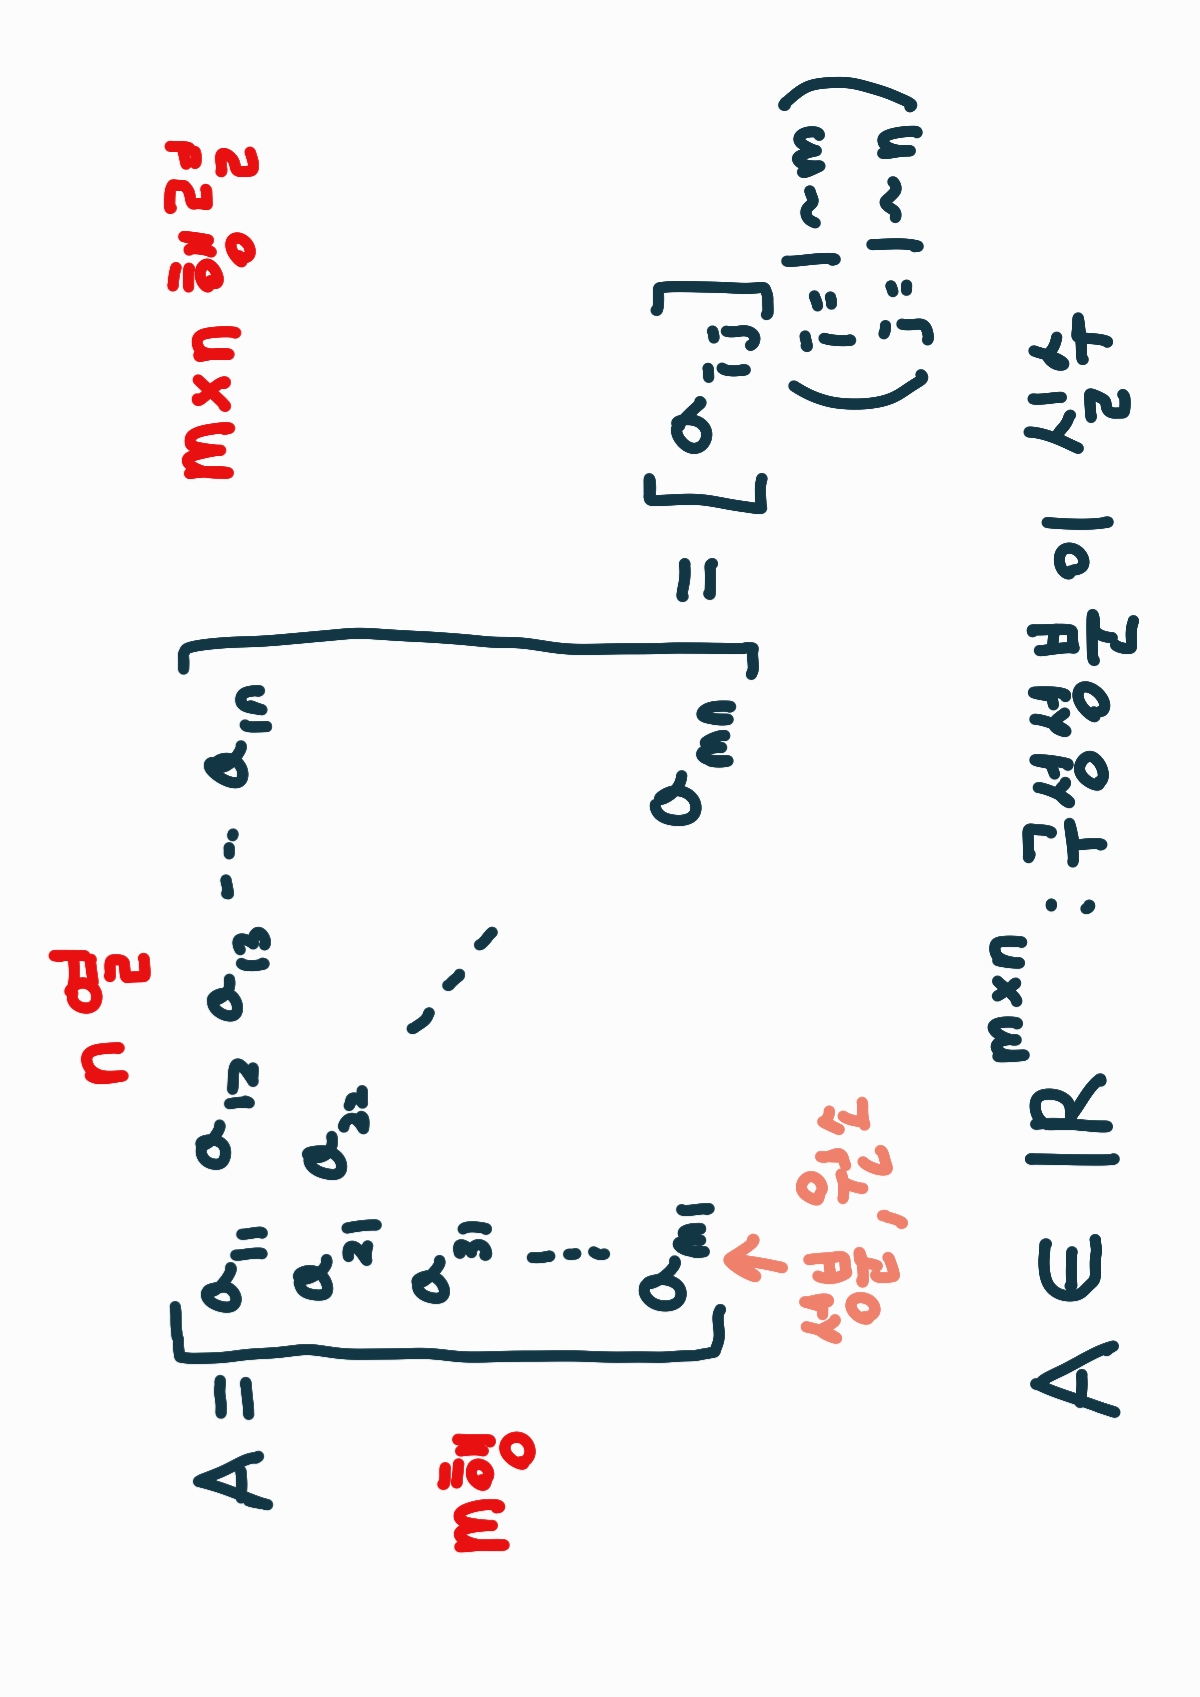 m×n 행렬
n 열
A = [ a11 a12 a13 ... a1n
a21 a22
m 행
a31
am1 amn ] = [ aij ]
(i=1~m
j=1~n)
성분, 원소
A ∈ ℝ m×n : 구성성분이 실수